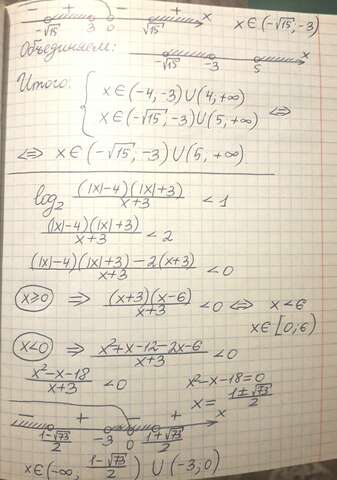 − + x x ∈ (−√15, −3)
−√15 3 0 √15
Объединяем:
−√15 −3 5 x
Итого: { x ∈ (−4, −3) ∪ (4, +∞)
x ∈ (−√15, −3) ∪ (5, +∞) ⇔
⇔ x ∈ (−√15, −3) ∪ (5, +∞)
log₂ (|x|−4)(|x|+3)/(x+3) < 1
(|x|−4)(|x|+3)/(x+3) < 2
((|x|−4)(|x|+3) − 2(x+3))/(x+3) < 0
x≥0 ⇒ (x+3)(x−6)/(x+3) < 0 ⇔ x < 6
x ∈ [0; 6)
x<0 ⇒ (x²+x−12−2x−6)/(x+3) < 0
(x²−x−18)/(x+3) < 0 x²−x−18=0
x = (1±√73)/2
− + − + x
(1−√73)/2 −3 0 (1+√73)/2
x ∈ (−∞, (1−√73)/2) ∪ (−3; 0)